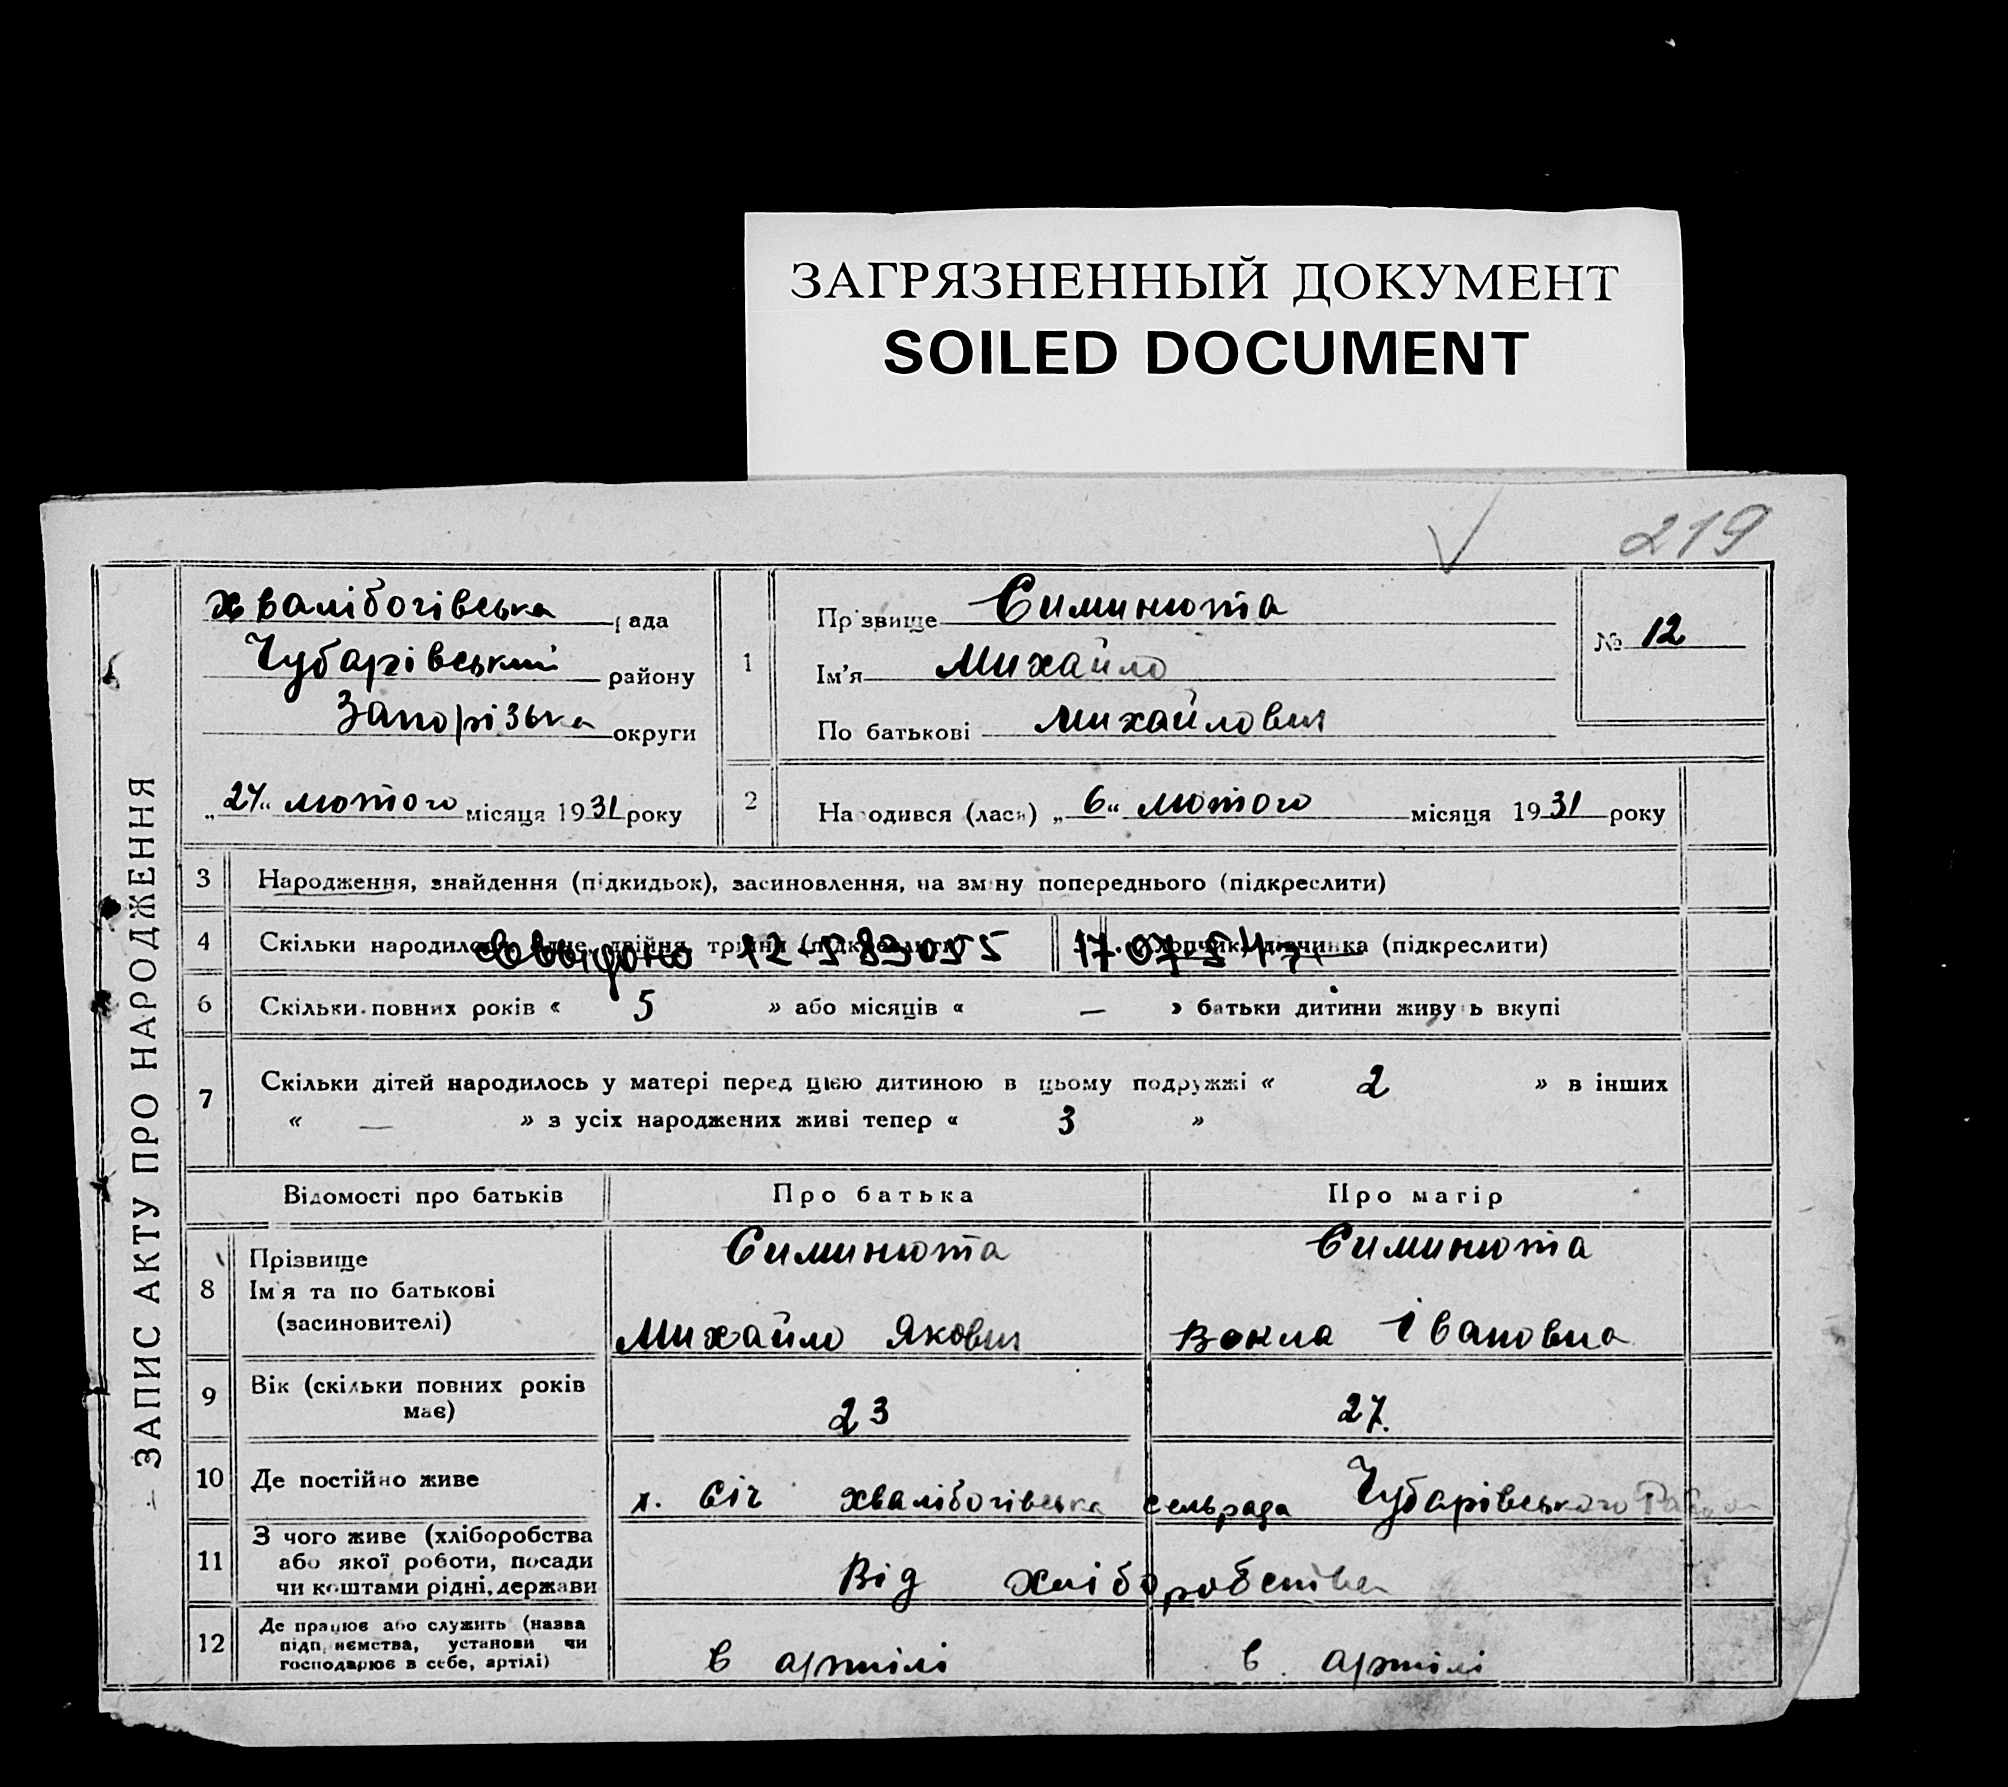 ЗАГРЯЗНЕННЫЙ ДОКУМЕНТ
SOILED DOCUMENT
219
ЗАПИС АКТУ ПРО НАРОДЖЕННЯ
Хвалібогівська рада
Чубарівський району
Запорізька округи
„24“ лютого місяця 1931 року
1
Прізвище Симинюта
Ім'я Михайло
По батькові Михайлович
№ 12
2 Народився (лася) „6“ лютого місяця 1931 року
3 Народження, знайдення (підкидьок), засиновлення, на зміну попереднього (підкреслити)
4 Скільки народилось двійня, трійня (підкреслити) хлопчик, дівчинка (підкреслити)
6 Скільки повних років « 5 » або місяців « — » батьки дитини живуть вкупі
7 Скільки дітей народилось у матері перед цією дитиною в цьому подружжі « 2 » в інших
« — » з усіх народжених живі тепер « 3 »
Відомості про батьків Про батька Про матір
8 Прізвище Симинюта Симинюта
Ім'я та по батькові
(засиновителі) Михайло Якович Вокла Івановна
9 Вік (скільки повних років має) 23 27.
10 Де постійно живе х. Січ Хвалібогівська сельрада Чубарівського
11 З чого живе (хліборобства
або якої роботи, посади
чи коштами рідні, держави Від хліборобства
12 Де працює або служить (назва
підприємства, установи чи
господарює в себе, артілі) в артілі в артілі